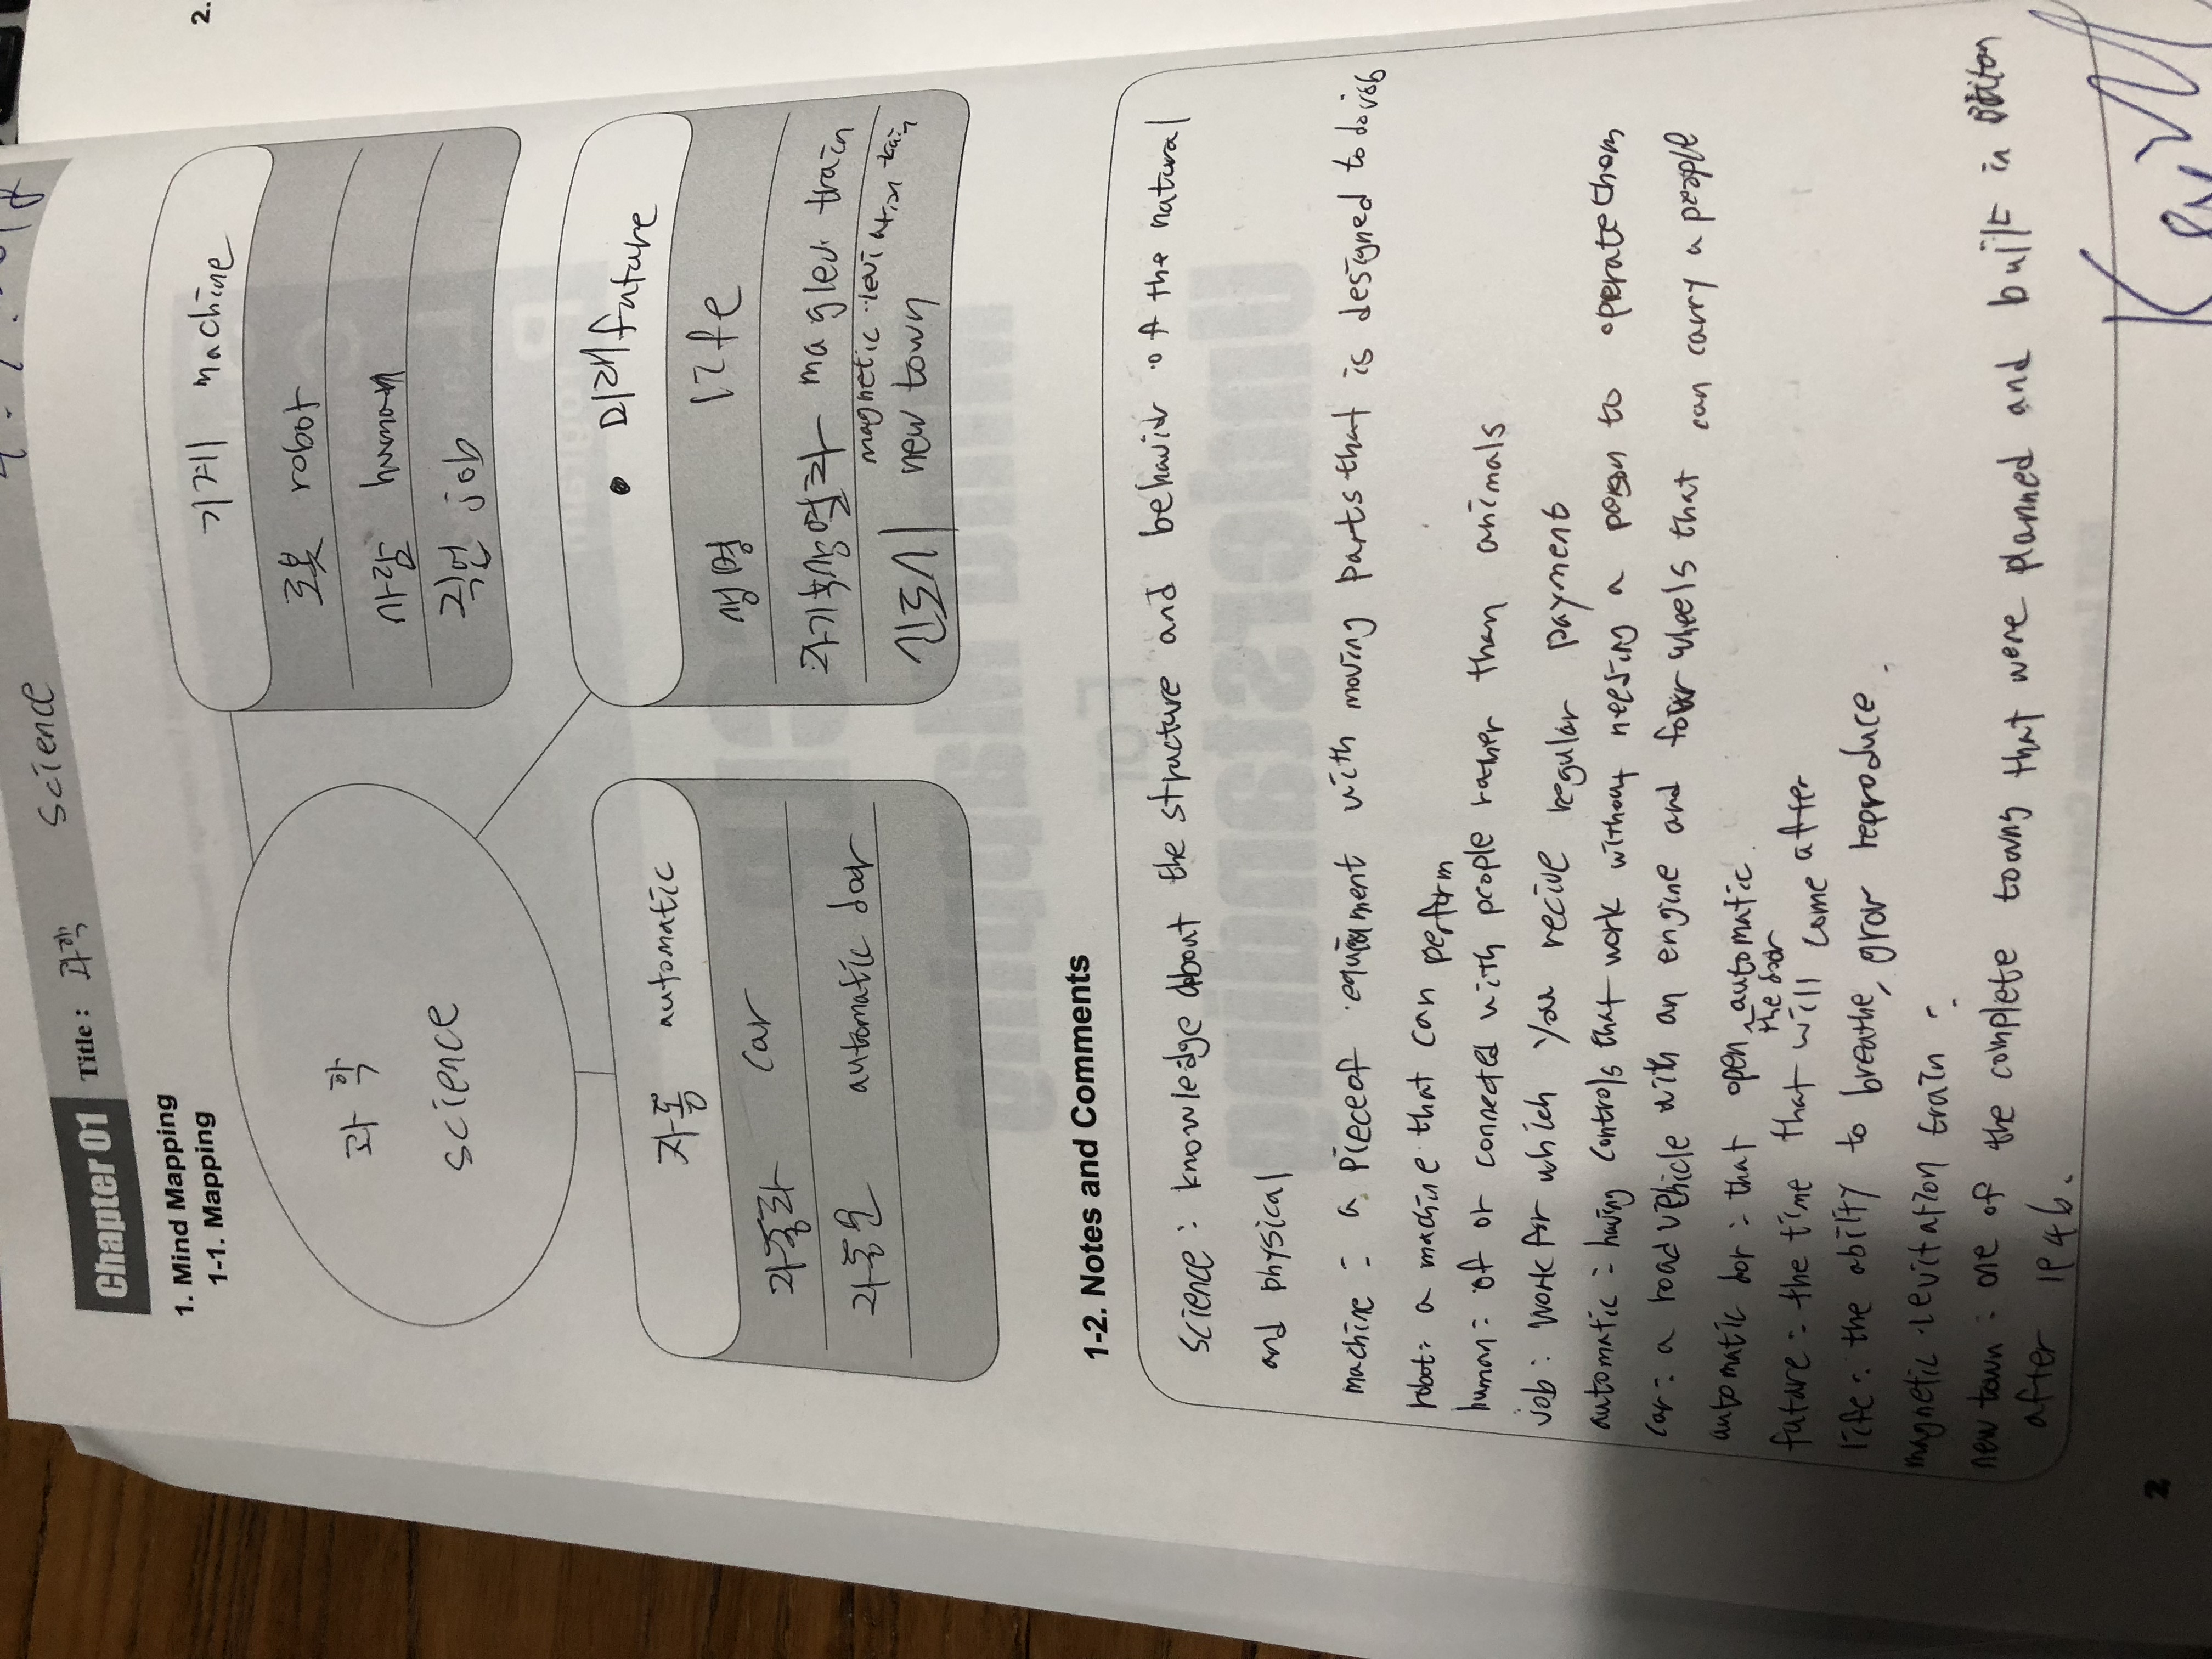 Chapter 01 Title : 과학 science
1. Mind Mapping
1-1. Mapping
과학
science
기계 machine
로봇 robot
사람 human
직업 job
자동 automatic
자동차 car
자동문 automatic dor
• 미래 future
생명 life
자기부상열차 maglev train
magnetic levitation train
신도시 new town
1-2. Notes and Comments
science : knowledge about the structure and behavior of the natural
and physical
machine : a pieceof equipment with moving parts that is designed to do job
robot : a machine that can perform
human : of or connected with people rather than animals
job : work for which you recive regular payment
automatic : having controls that work without needing a person to operate them
car : a road vehicle with an engine and four wheels that can carry a people
automatic dor : that open the door automatic.
future : the time that will come after
life : the ability to breathe, grow reproduce.
magnetic levitation train :
new town : one of the complete towns that were planned and built in
after 1946.
2
2.